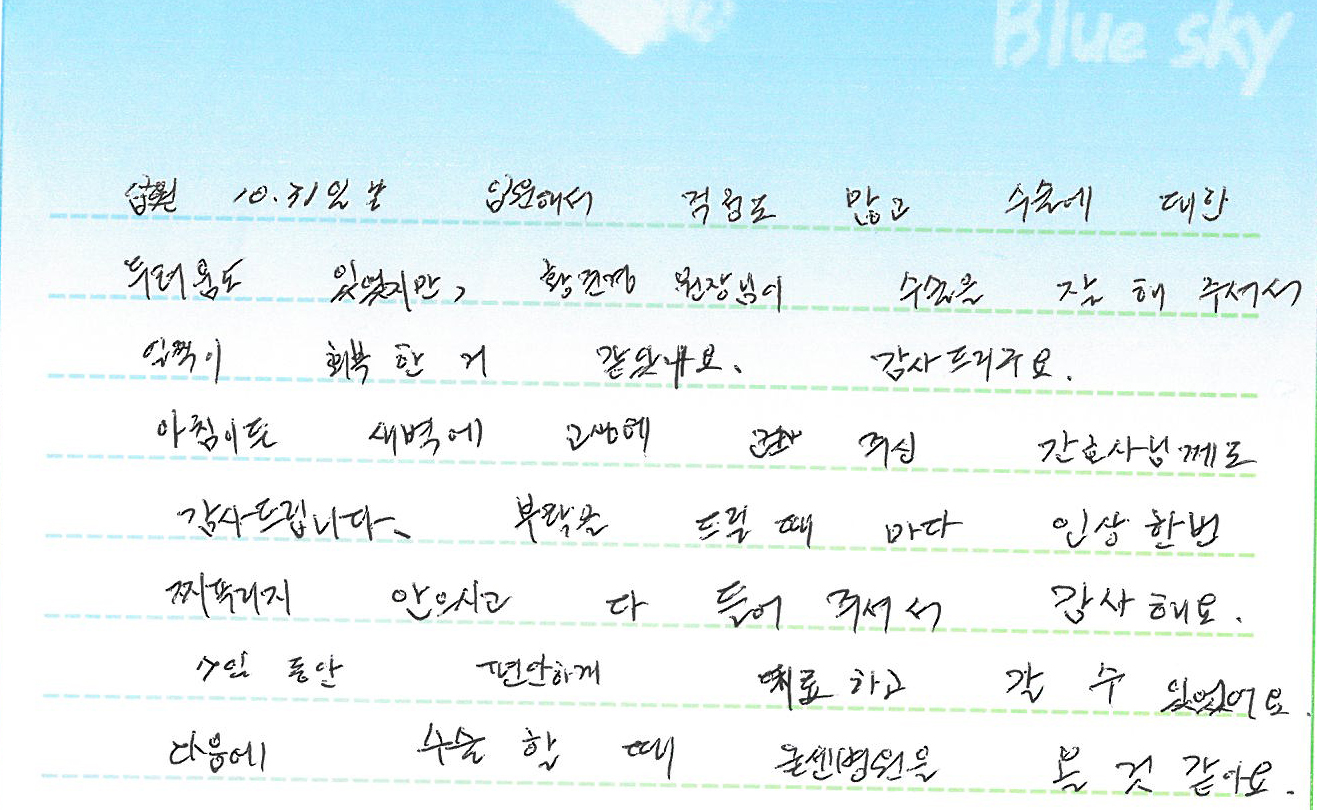 Blue sky
입원 10.31일날 입원해서 걱정도 많고 수술에 대한
두려움도 있었지만, 원장님이 수술을 잘 해 주셔서
일찍이 회복 한 거 같았내요. 감사드리구요.
아침이든 새벽에 고생해 주신 간호사님께도
감사드립니다. 부탁을 드릴 때 마다 인상 한번
찌푸리지 안으시고 다 들어 주셔서 감사해요.
7일 동안 편안하게 치료하고 갈 수 있었어요.
다음에 수술 할 때 굳센병원을 올 것 같아요.